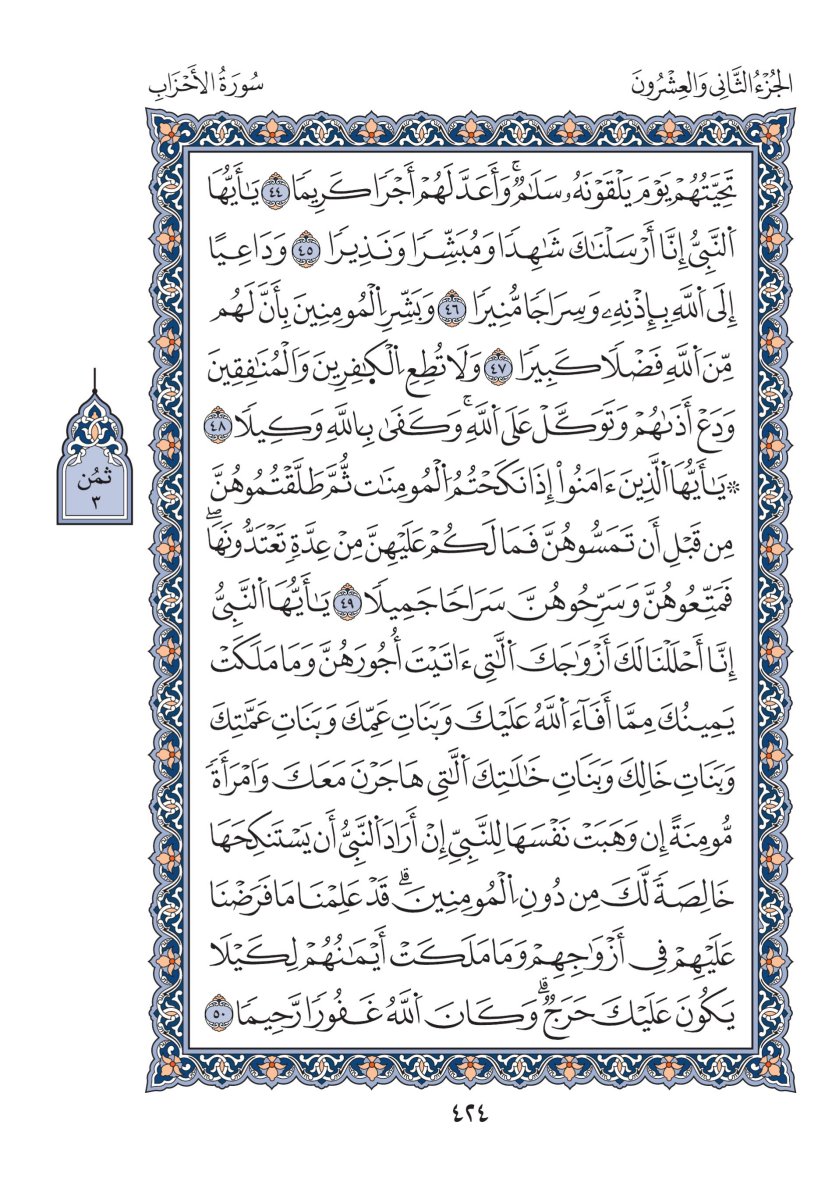 الجُزْءُ الثَّانِي وَالعِشْرُونَ
سُورَةُ الأَحْزَابِ
تَحِيَّتُهُمْ يَوْمَ يَلْقَوْنَهُۥ سَلَٰمٞۚ وَأَعَدَّ لَهُمْ أَجْرٗا كَرِيمٗا ٤٤ يَٰأَيُّهَا
اَ۬لنَّبِيُّ إِنَّا أَرْسَلْنَٰكَ شَٰهِدٗا وَمُبَشِّرٗا وَنَذِيرٗا ٤٥ وَدَاعِيًا
إِلَى اَ۬للَّهِ بِإِذْنِهِۦ وَسِرَاجٗا مُّنِيرٗا ٤٦ وَبَشِّرِ اِ۬لْمُومِنِينَ بِأَنَّ لَهُم
مِّنَ اَ۬للَّهِ فَضْلٗا كَبِيرٗا ٤٧ وَلَا تُطِعِ اِ۬لْكٰ۪فِرِينَ وَالْمُنَٰفِقِينَ
وَدَعْ أَذَىٰهُمْ وَتَوَكَّلْ عَلَى اَ۬للَّهِۚ وَكَفَىٰ بِاللَّهِ وَكِيلٗا ٤٨
۞ يَٰأَيُّهَا اَ۬لَّذِينَ ءَامَنُواْ إِذَا نَكَحْتُمُ اُ۬لْمُومِنَٰتِ ثُمَّ طَلَّقْتُمُوهُنَّ
مِن قَبْلِ أَن تَمَسُّوهُنَّ فَمَا لَكُمْ عَلَيْهِنَّ مِنْ عِدَّةٖ تَعْتَدُّونَهَاۖ
فَمَتِّعُوهُنَّ وَسَرِّحُوهُنَّ سَرَاحٗا جَمِيلٗا ٤٩ يَٰأَيُّهَا اَ۬لنَّبِيُّ
إِنَّا أَحْلَلْنَا لَكَ أَزْوَٰجَكَ اَ۬لَّٰتِي ءَاتَيْتَ أُجُورَهُنَّ وَمَا مَلَكَتْ
يَمِينُكَ مِمَّا أَفَآءَ اَ۬للَّهُ عَلَيْكَ وَبَنَاتِ عَمِّكَ وَبَنَاتِ عَمَّٰتِكَ
وَبَنَاتِ خَالِكَ وَبَنَاتِ خَٰلَٰتِكَ اَ۬لَّٰتِي هَاجَرْنَ مَعَكَ وَامْرَأَةٗ
مُّومِنَةً إِن وَهَبَتْ نَفْسَهَا لِلنَّبِيِّ إِنْ أَرَادَ اَ۬لنَّبِيُّ أَن يَسْتَنكِحَهَا
خَالِصَةٗ لَّكَ مِن دُونِ اِ۬لْمُومِنِينَۗ قَدْ عَلِمْنَا مَا فَرَضْنَا
عَلَيْهِمْ فِي أَزْوَٰجِهِمْ وَمَا مَلَكَتْ أَيْمَٰنُهُمْ لِكَيْلَا
يَكُونَ عَلَيْكَ حَرَجٞۗ وَكَانَ اَ۬للَّهُ غَفُورٗا رَّحِيمٗا ٥٠
ثُمُن
٣
٤٢٤